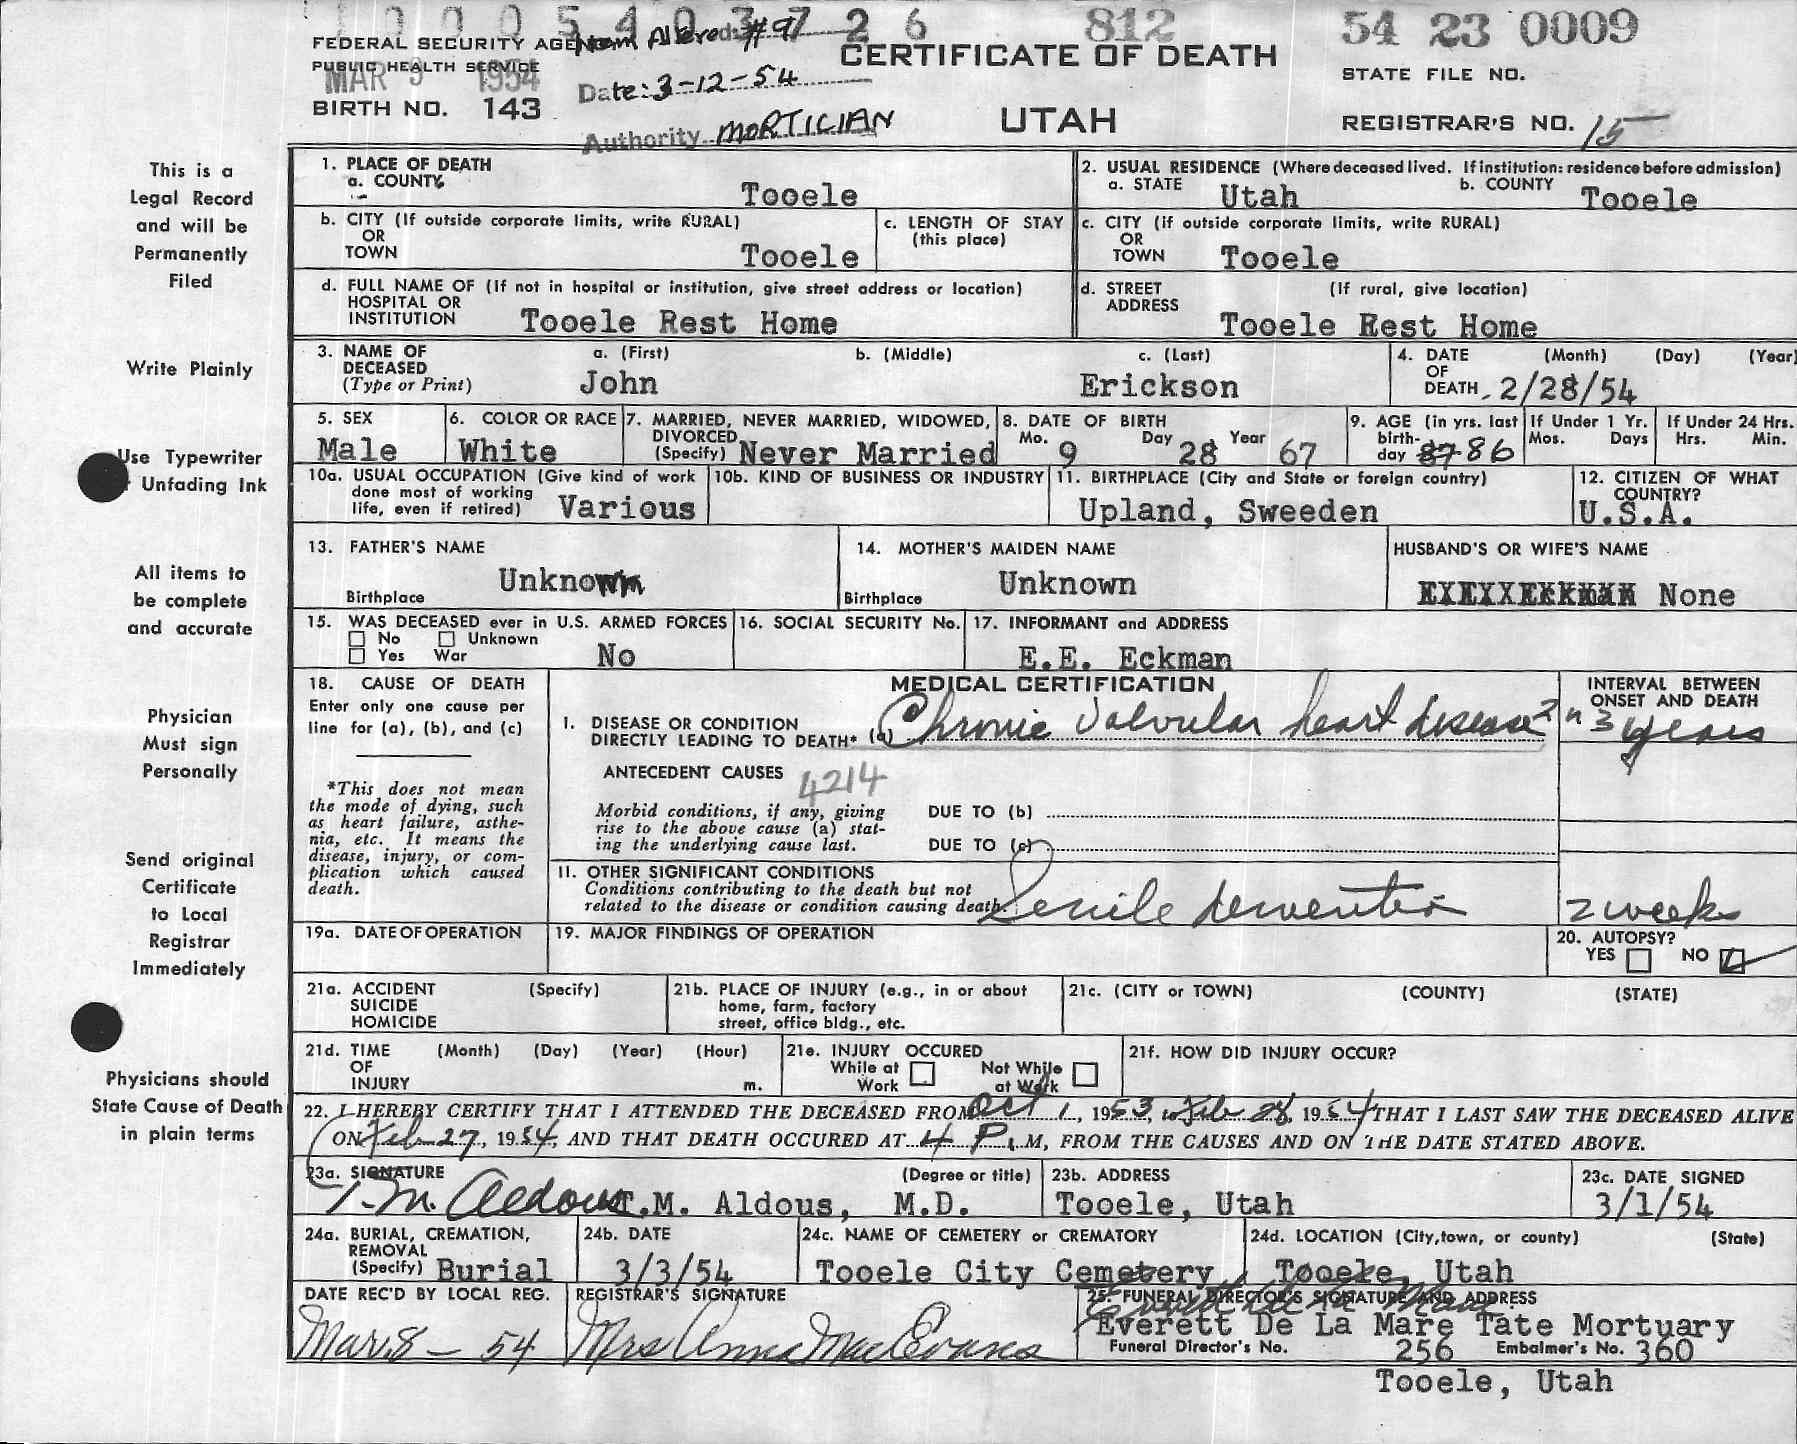 1 0 0 0 5 4 0 3 7 2 6 812 54 23 0009
FEDERAL SECURITY AGENCY Altered: #9 CERTIFICATE OF DEATH
PUBLIC HEALTH SERVICE STATE FILE NO.
MAR 9 1954 Date: 3-12-54
BIRTH NO. 143 UTAH REGISTRAR'S NO. 15
Authority MORTICIAN
This is a
Legal Record
and will be
Permanently
Filed
Write Plainly
Use Typewriter
Unfading Ink
All items to
be complete
and accurate
Physician
Must sign
Personally
Send original
Certificate
to Local
Registrar
Immediately
Physicians should
State Cause of Death
in plain terms
1. PLACE OF DEATH
a. COUNTY Tooele
2. USUAL RESIDENCE (Where deceased lived. If institution: residence before admission)
a. STATE Utah b. COUNTY Tooele
b. CITY (If outside corporate limits, write RURAL)
OR
TOWN Tooele
c. LENGTH OF STAY
(this place)
c. CITY (if outside corporate limits, write RURAL)
OR
TOWN Tooele
d. FULL NAME OF (If not in hospital or institution, give street address or location)
HOSPITAL OR
INSTITUTION Tooele Rest Home
d. STREET (If rural, give location)
ADDRESS
Tooele Rest Home
3. NAME OF a. (First) b. (Middle) c. (Last)
DECEASED
(Type or Print) John Erickson
4. DATE (Month) (Day) (Year)
OF
DEATH 2/28/54
5. SEX
Male
6. COLOR OR RACE
White
7. MARRIED, NEVER MARRIED, WIDOWED,
DIVORCED
(Specify) Never Married
8. DATE OF BIRTH
Mo. Day Year
9 28 67
9. AGE (in yrs. last
birth-
day 87 86
If Under 1 Yr.
Mos. Days
If Under 24 Hrs.
Hrs. Min.
10a. USUAL OCCUPATION (Give kind of work
done most of working
life, even if retired) Various
10b. KIND OF BUSINESS OR INDUSTRY
11. BIRTHPLACE (City and State or foreign country)
Upland, Sweeden
12. CITIZEN OF WHAT
COUNTRY?
U.S.A.
13. FATHER'S NAME
Unknown
Birthplace
14. MOTHER'S MAIDEN NAME
Unknown
Birthplace
HUSBAND'S OR WIFE'S NAME
None
15. WAS DECEASED ever in U.S. ARMED FORCES
No Unknown
Yes War No
16. SOCIAL SECURITY No.
17. INFORMANT and ADDRESS
E.E. Eckman
18. CAUSE OF DEATH
Enter only one cause per
line for (a), (b), and (c)
*This does not mean
the mode of dying, such
as heart failure, asthe-
nia, etc. It means the
disease, injury, or com-
plication which caused
death.
MEDICAL CERTIFICATION
INTERVAL BETWEEN
ONSET AND DEATH
I. DISEASE OR CONDITION
DIRECTLY LEADING TO DEATH* (a) Chronic Valvular heart disease 2 n 3 years
ANTECEDENT CAUSES 4214
Morbid conditions, if any, giving
rise to the above cause (a) stat-
ing the underlying cause last.
DUE TO (b)
DUE TO (c)
II. OTHER SIGNIFICANT CONDITIONS
Conditions contributing to the death but not
related to the disease or condition causing death. Senile dementia 2 weeks
19a. DATE OF OPERATION
19. MAJOR FINDINGS OF OPERATION
20. AUTOPSY?
YES NO
21a. ACCIDENT (Specify)
SUICIDE
HOMICIDE
21b. PLACE OF INJURY (e.g., in or about
home, farm, factory
street, office bldg., etc.
21c. (CITY or TOWN) (COUNTY) (STATE)
21d. TIME (Month) (Day) (Year) (Hour)
OF
INJURY m.
21e. INJURY OCCURED
While at Not While
Work at Work
21f. HOW DID INJURY OCCUR?
22. I HEREBY CERTIFY THAT I ATTENDED THE DECEASED FROM Oct 1, 1953, to Feb 28, 1954 THAT I LAST SAW THE DECEASED ALIVE
ON Feb 27, 1954, AND THAT DEATH OCCURED AT 4 P.M, FROM THE CAUSES AND ON THE DATE STATED ABOVE.
23a. SIGNATURE (Degree or title)
T.M. Aldous T.M. Aldous, M.D.
23b. ADDRESS
Tooele, Utah
23c. DATE SIGNED
3/1/54
24a. BURIAL, CREMATION,
REMOVAL
(Specify) Burial
24b. DATE
3/3/54
24c. NAME OF CEMETERY or CREMATORY
Tooele City Cemetery
24d. LOCATION (City, town, or county) (State)
Tooele, Utah
DATE REC'D BY LOCAL REG.
Mar. 8 - 54
REGISTRAR'S SIGNATURE
Mrs Anna Mae Evans
25. FUNERAL DIRECTOR'S SIGNATURE AND ADDRESS
Everett De La Mare
Everett De La Mare Tate Mortuary
Funeral Director's No. 256 Embalmer's No. 360
Tooele, Utah